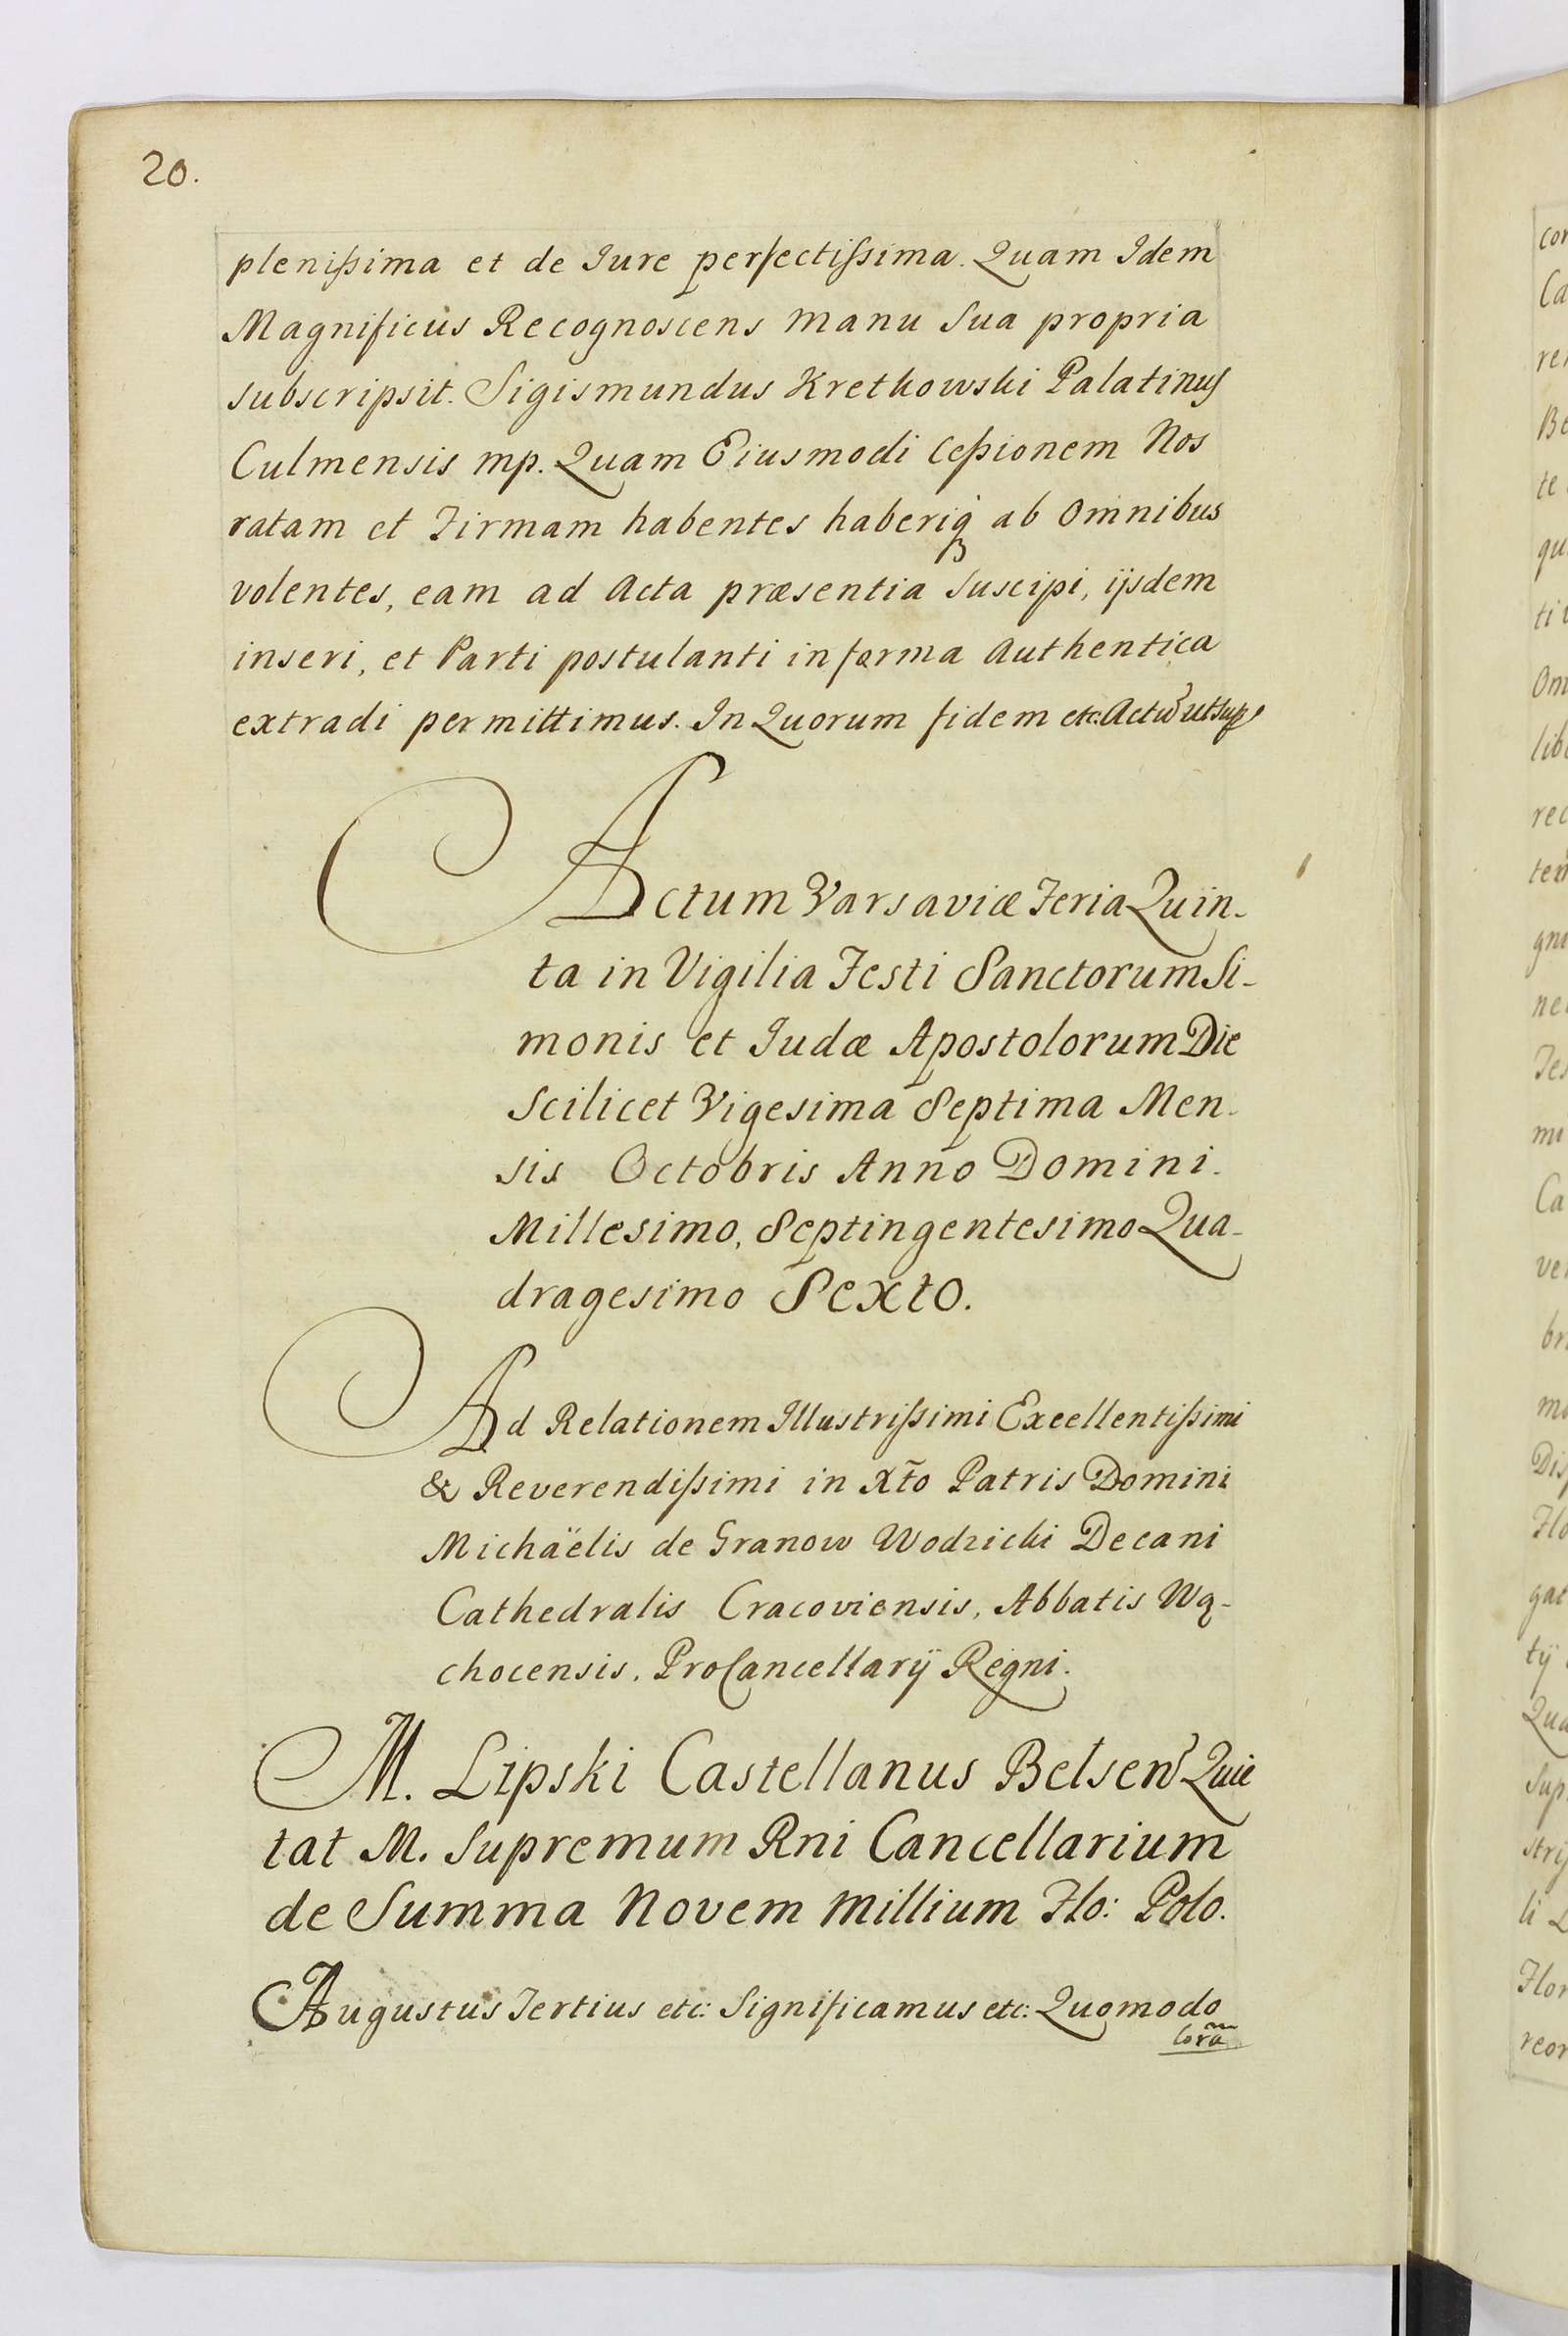 20.
plenissima et de Jure perfectissima. Quam Idem
Magnificus Recognoscens manu Sua propria
subscripsit. Sigismundus Kretkowski Palatinus
Culmensis mp. Quam Eiusmodi Cessionem Nos
ratam et Firmam habentes haberiq₃ ab Omnibus
volentes, eam ad Acta præsentia Suscipi, ijsdem
inseri, et Parti postulanti in forma Authentica
extradi permittimus. In Quorum fidem etc: Actũ ut sup.
Actum Varsaviæ Feria Quin-
ta in Vigilia Festi Sanctorum Si-
monis et Judæ Apostolorum Die
Scilicet Vigesima Septima Men-
sis Octobris Anno Domini.
Millesimo, Septingentesimo Qua-
dragesimo Sexto.
Ad Relationem Illustrissimi Excellentissimi
& Reverendissimi in Xt̃o Patris Domini
Michaëlis de Granow Wodzicki Decani
Cathedralis Cracoviensis, Abbatis Wą-
chocensis, ProCancellarÿ Regni.
M. Lipski Castellanus Belsen̄ Quie
tat M. Supremum Rni Cancellarium
de Summa Novem Millium Flo: Polo.
Augustus Tertius etc: Significamus etc: Quomodo
Corã
cor
Ca
rer
Be
te
qu
ti
Om
lib
rec
gnu
ne
Fes
mi
Ca
ve
br
Dis
Flo
gat
tÿ
Qua
Sup
stris
li
Flor
reor